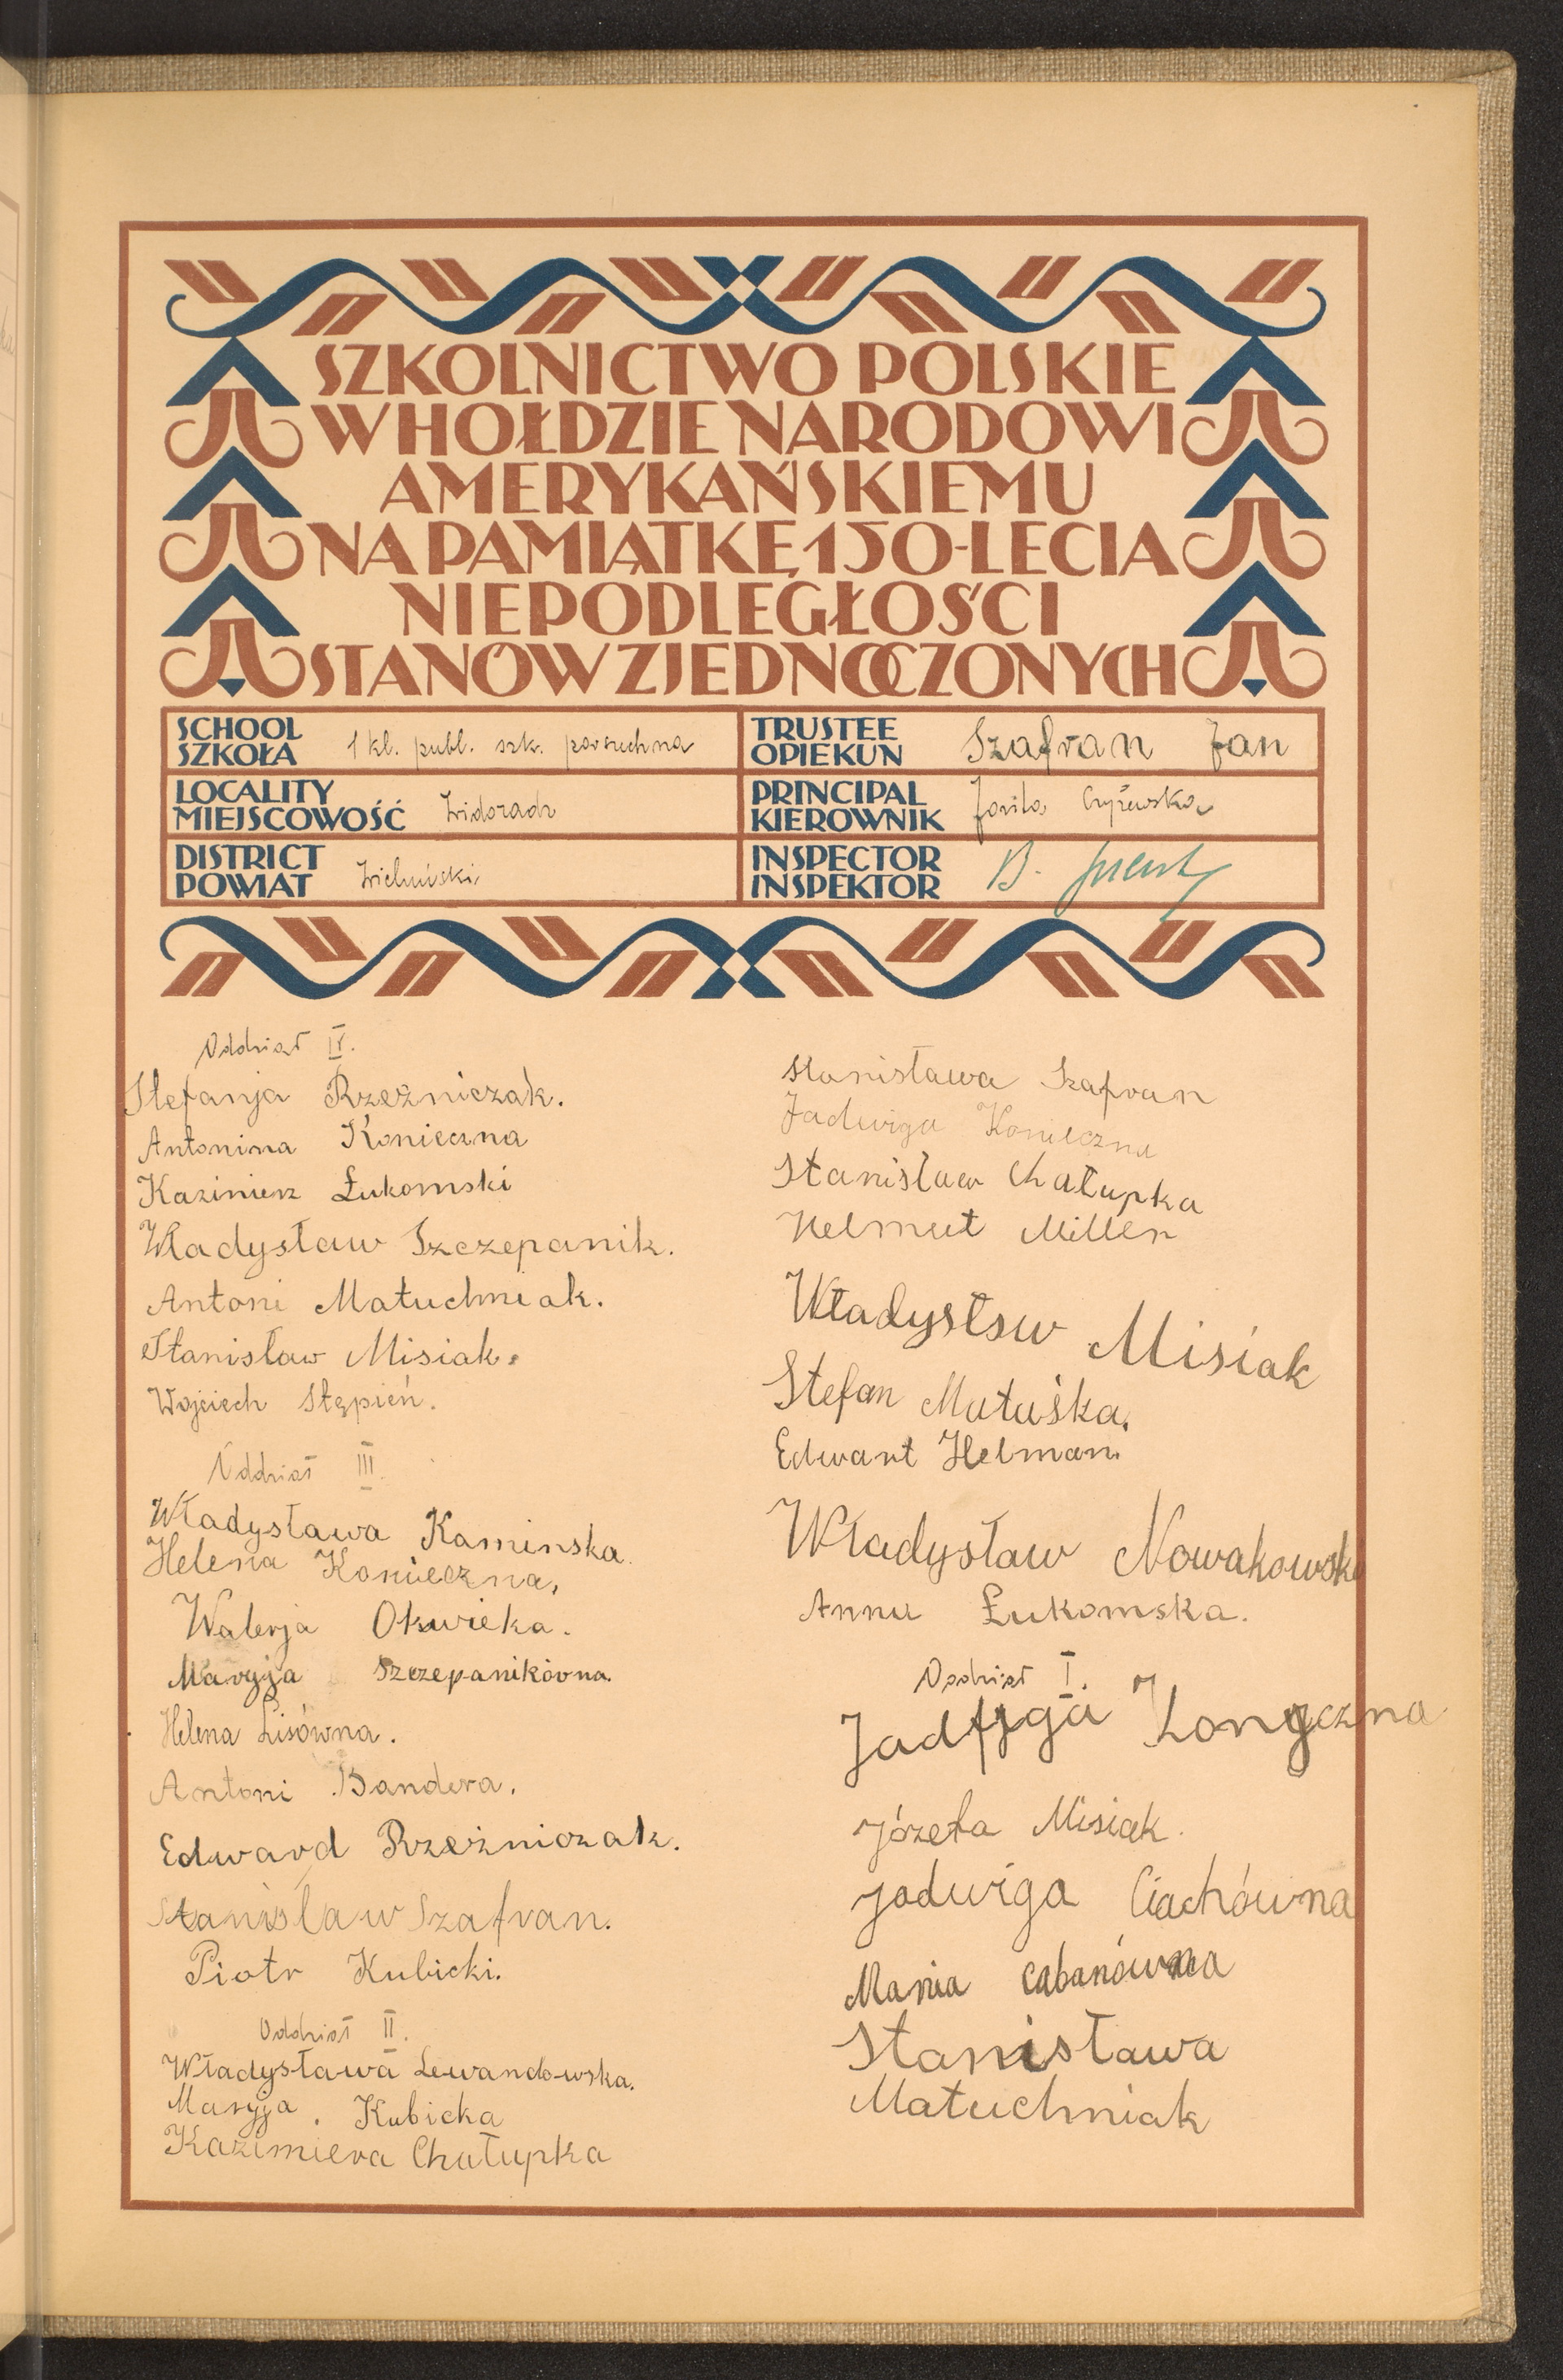 SZKOLNICTWO POLSKIE
W HOŁDZIE NARODOWI
AMERYKAŃSKIEMU
NA PAMIĄTKĘ 150-LECIA
NIEPODLEGŁOŚCI
STANÓW ZJEDNOCZONYCH
SCHOOL
SZKOŁA 1 kl. publ. szk. powszechna
TRUSTEE
OPIEKUN Szafran Jan
LOCALITY
MIEJSCOWOŚĆ Widoradz
PRINCIPAL
KIEROWNIK Jovita Czyżewska
DISTRICT
POWIAT Wieluński
INSPECTOR
INSPEKTOR B.
Oddział IV.
Stefanja Rzeźniczak.
Antonina Konieczna
Kazimierz Łukomski
Władysław Szczepanik.
Antoni Matuchniak.
Stanisław Misiak.
Wojciech Stępień.
Oddział III.
Władysława Kaminska.
Helena Konieczna,
Walerja Okwieka.
Maryja Szczepanikówna.
Helena Lisówna.
Antoni Bandera.
Edward Rzeźniczak.
Stanisław Szafran.
Piotr Kubicki.
Oddział II.
Władysława Lewandowska.
Maryja Kubicka
Kazimiera Chałupka
Stanisława Szafran
Jadwiga Konieczna
Stanisław Chałupka
Helmut Miller
Władysłsw Misiak
Stefan Matuśka.
Edwart Helman.
Władysław Nowakowski
Anna Łukomska.
Oddział I.
Jadfyga Konyczna
Józefa Misiak.
Jadwiga Ciachówna
Mania Cabanówna
Stanisława
Matuchniak